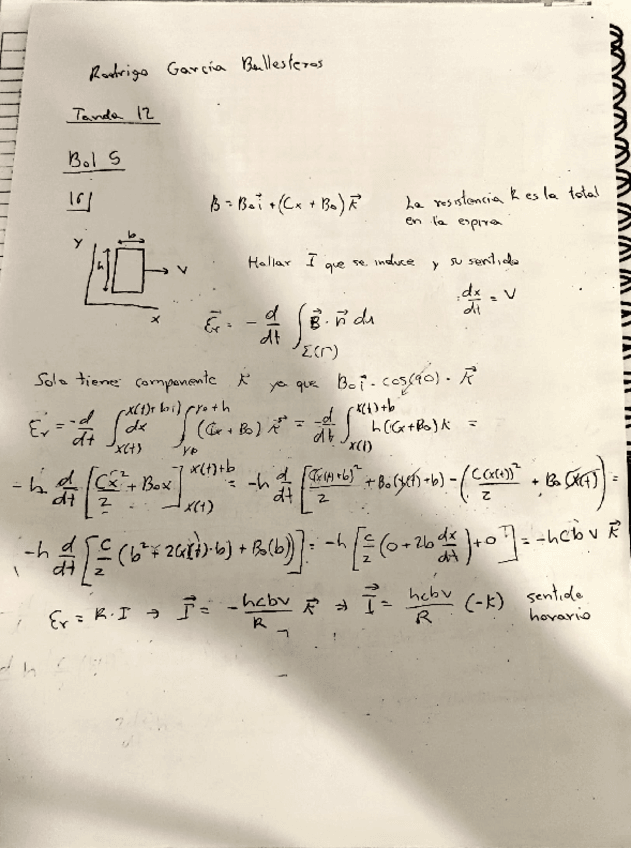 Rodrigo García Ballesteros
Tanda 12
Bol 5
16
B = B₀i⃗ + (Cx + B₀) k⃗ La resistencia R es la total
en la espira
y b h v x
Hallar I⃗ que se induce y su sentido
dx/dt = v
ε⃗r = - d/dt ∫Σ(Γ) B⃗ · n⃗ ds
Solo tiene componente k⃗ ya que B₀i⃗ · cos(90) · k⃗
εr = -d/dt ∫x(t)^x(t)+b dx ∫y₀^y₀+h (Cx + B₀) k⃗ = -d/dt ∫x(t)^x(t)+b h(Cx+B₀)k =
= -h d/dt [Cx²/2 + B₀x]x(t)^x(t)+b = -h d/dt [C(x(t)+b)²/2 + B₀(x(t)+b) - (C(x(t))²/2 + B₀(x(t))] =
-h d/dt [C/2 (b² + 2(x(t)·b) + B₀(b))] = -h [C/2 (0 + 2b dx/dt) + 0] = -hCbv k⃗
εr = R·I → I⃗ = -hcbv/R k⃗ ⇒ I⃗ = hcbv/R (-k) sentido
horario